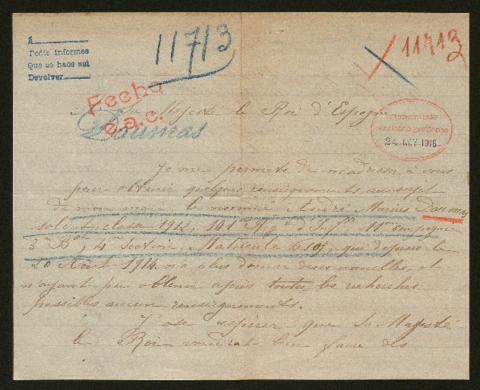 A
Pedir informes
Que se hace así
Devolver
11713
11713
Fecha
e.a.c.
Daumas
24 1916
Sa Majesté le Roi d'Espagne
Je me permets de m'adresser à vous
pour obtenir quelques renseignements au sujet
de mon le nommé Marius Daumas
soldat classe 1912, 141 Reg. d'Inf. 11e compagnie
3 Bon, 4e Section, Matricule qui depuis le
20 Août 1914 n'a plus donné de ses nouvelles, et
n'ayant peu obtenir après toutes les recherches
possibles aucun renseignements.
J'ose espérer que Sa Majesté
le Roi voudra bien faire des